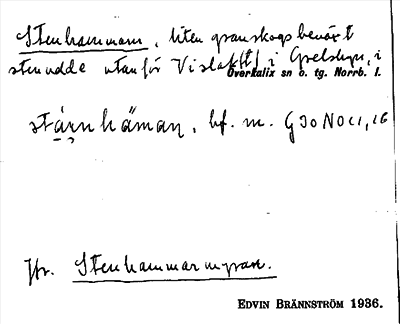 Stenhammarn, liten granskogsbevuxt
stenudde utanför Vislaktt i Grelsbyn, i
Överkalix sn o. tg. Norrb. l.
stárnhäman, bf. m. G 30 NO 11, 16
Jfr. Stenhammarmyran.
EDVIN BRÄNNSTRÖM 1936.